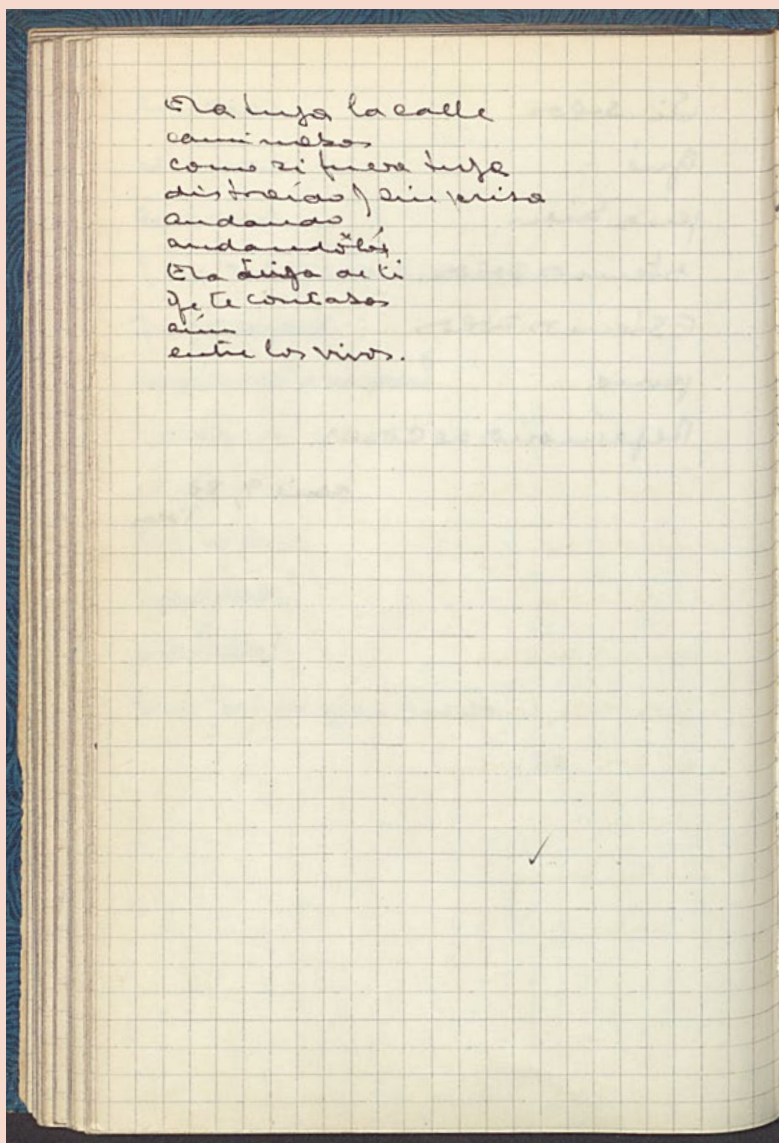 Era tuya la calle
caminabas
como si fuera tuya
distraído y sin prisa
andando
andándola
Era de ti
qe te contabas
aún
entre los vivos.